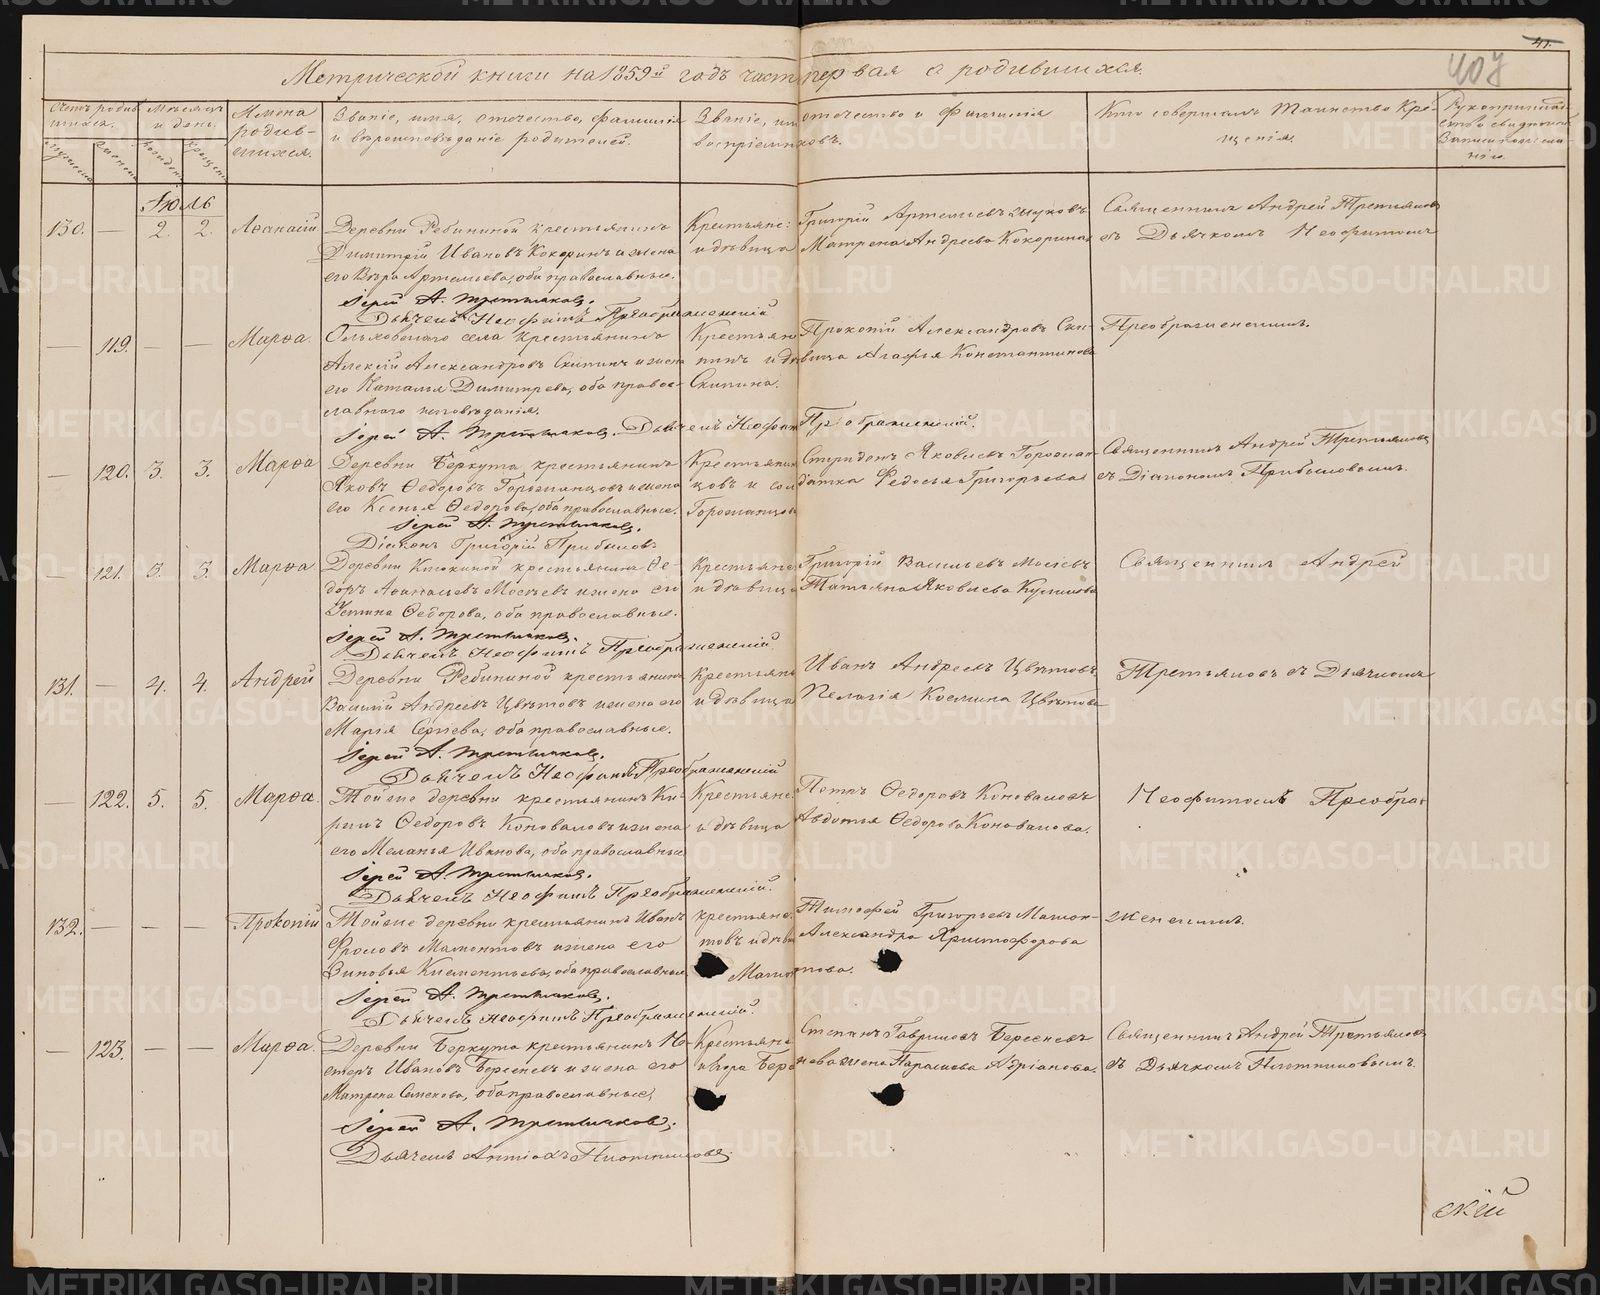 407
Метрической книги на 1859й годъ часть первая о родившихся.
Счетъ родившихся.
Мѣсяцъ и день.
Имена родившихся.
Званіе, имя, отечество, фамилія и вѣроисповѣданіе родителей.
Званіе, имя, отечество и фамилія воспріемниковъ.
Кто совершалъ таинство крещенія.
Рукоприкладство свидѣтелей записи по желанію.
Іюль
130. — 2. 2. Аѳанасій
Деревни Рѣбининой крестьянинъ
Димитрій Ивановъ Кокоринъ и жена
его Вѣра Артемьева, оба православные.
Іерей А. Третьяковъ.
Дьячекъ Неофитъ Преображенскій
Крестьяне: Григорій Артемьевъ
и дѣвица Матрена Андреева Кокорина
Священникъ Андрей Третьяковъ
съ Дьячкомъ Неофитомъ
— 119. — — Марѳа.
Ольховскаго села крестьянинъ
Алексій Александровъ Скипинъ и жена
его Наталья Димитрева, оба православнаго исповѣданія.
Іерей А. Третьяковъ. Дьячекъ Неофитъ Преображенскій.
Крестьянинъ Прокопій Александровъ Скипинъ и дѣвица Агафья Константинова
Скипина.
Преображенскимъ.
— 120. 3. 3. Марѳа
Деревни Беркута, крестьянинъ
Яковъ Ѳедоровъ и жена
его Ксенья Ѳедорова, оба православные.
Іерей А. Третьяковъ.
Діаконъ Григорій Прибыловъ
Крестьянинъ Спиридонъ Яковлевъ
и солдатка Федосья Григорьева
Священникъ Андрей Третьяковъ
съ Діакономъ Прибыловымъ.
— 121. 3. 3. Марѳа
Деревни крестьянинъ Ѳедоръ Аѳанасьевъ и жена его
Устина Ѳедорова, оба православные.
Іерей А. Третьяковъ.
Дьячекъ Неофитъ Преображенскій
Крестьяне Григорій Васильевъ
и дѣвица Татьяна Яковлева
Священникъ Андрей
131. — 4. 4. Андрей
Деревни Рѣбининой крестьянинъ
Василій Андреевъ Цвѣтовъ и жена его
Марія Сергіева, оба православные.
Іерей А. Третьяковъ.
Дьячекъ Неофитъ Преображенскій
Крестьяне Иванъ Андреевъ Цвѣтовъ
и дѣвица Пелагія Космина Цвѣтова
Третьяковъ съ Дьячкомъ
— 122. 5. 5. Марѳа.
Той же деревни крестьянинъ Кирилъ Ѳедоровъ Коноваловъ и жена
его Меланья Иванова, оба православные
Іерей А. Третьяковъ.
Дьячекъ Неофитъ Преображенскій.
Крестьяне: Петръ Ѳедоровъ Коноваловъ
и дѣвица Авдотья Ѳедорова Коновалова.
Неофитомъ Преобра-
132. — — — Прокопій
Той же деревни крестьянинъ Иванъ
Фроловъ Мамонтовъ и жена его
Зиновья Климентьева, оба православные
Іерей А. Третьяковъ.
Дьячекъ Неофитъ Преображенскій.
крестьяне: Тимофей Григорьевъ Мамонтовъ и дѣвица Александра Христофорова
Мамонтова.
женскимъ.
— 123. — — Марѳа.
Деревни Беркута крестьянинъ Петеръ Ивановъ Берсеневъ и жена его
Матрена Семенова, оба православные.
Іерей А. Третьяковъ.
Дьячекъ Антіохъ Плотниковъ.
Крестьяне Степанъ Гавриловъ Берсеневъ
жена Парасковья Адріанова.
Священникъ Андрей Третьяковъ
съ Дьячкомъ Плотниковымъ.
скій
METRIKI.GASO-URAL.RU